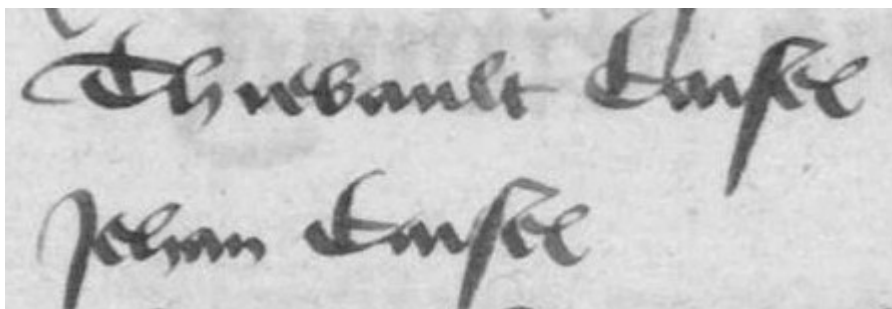 Thiebault Caisel
Jehan Caisel